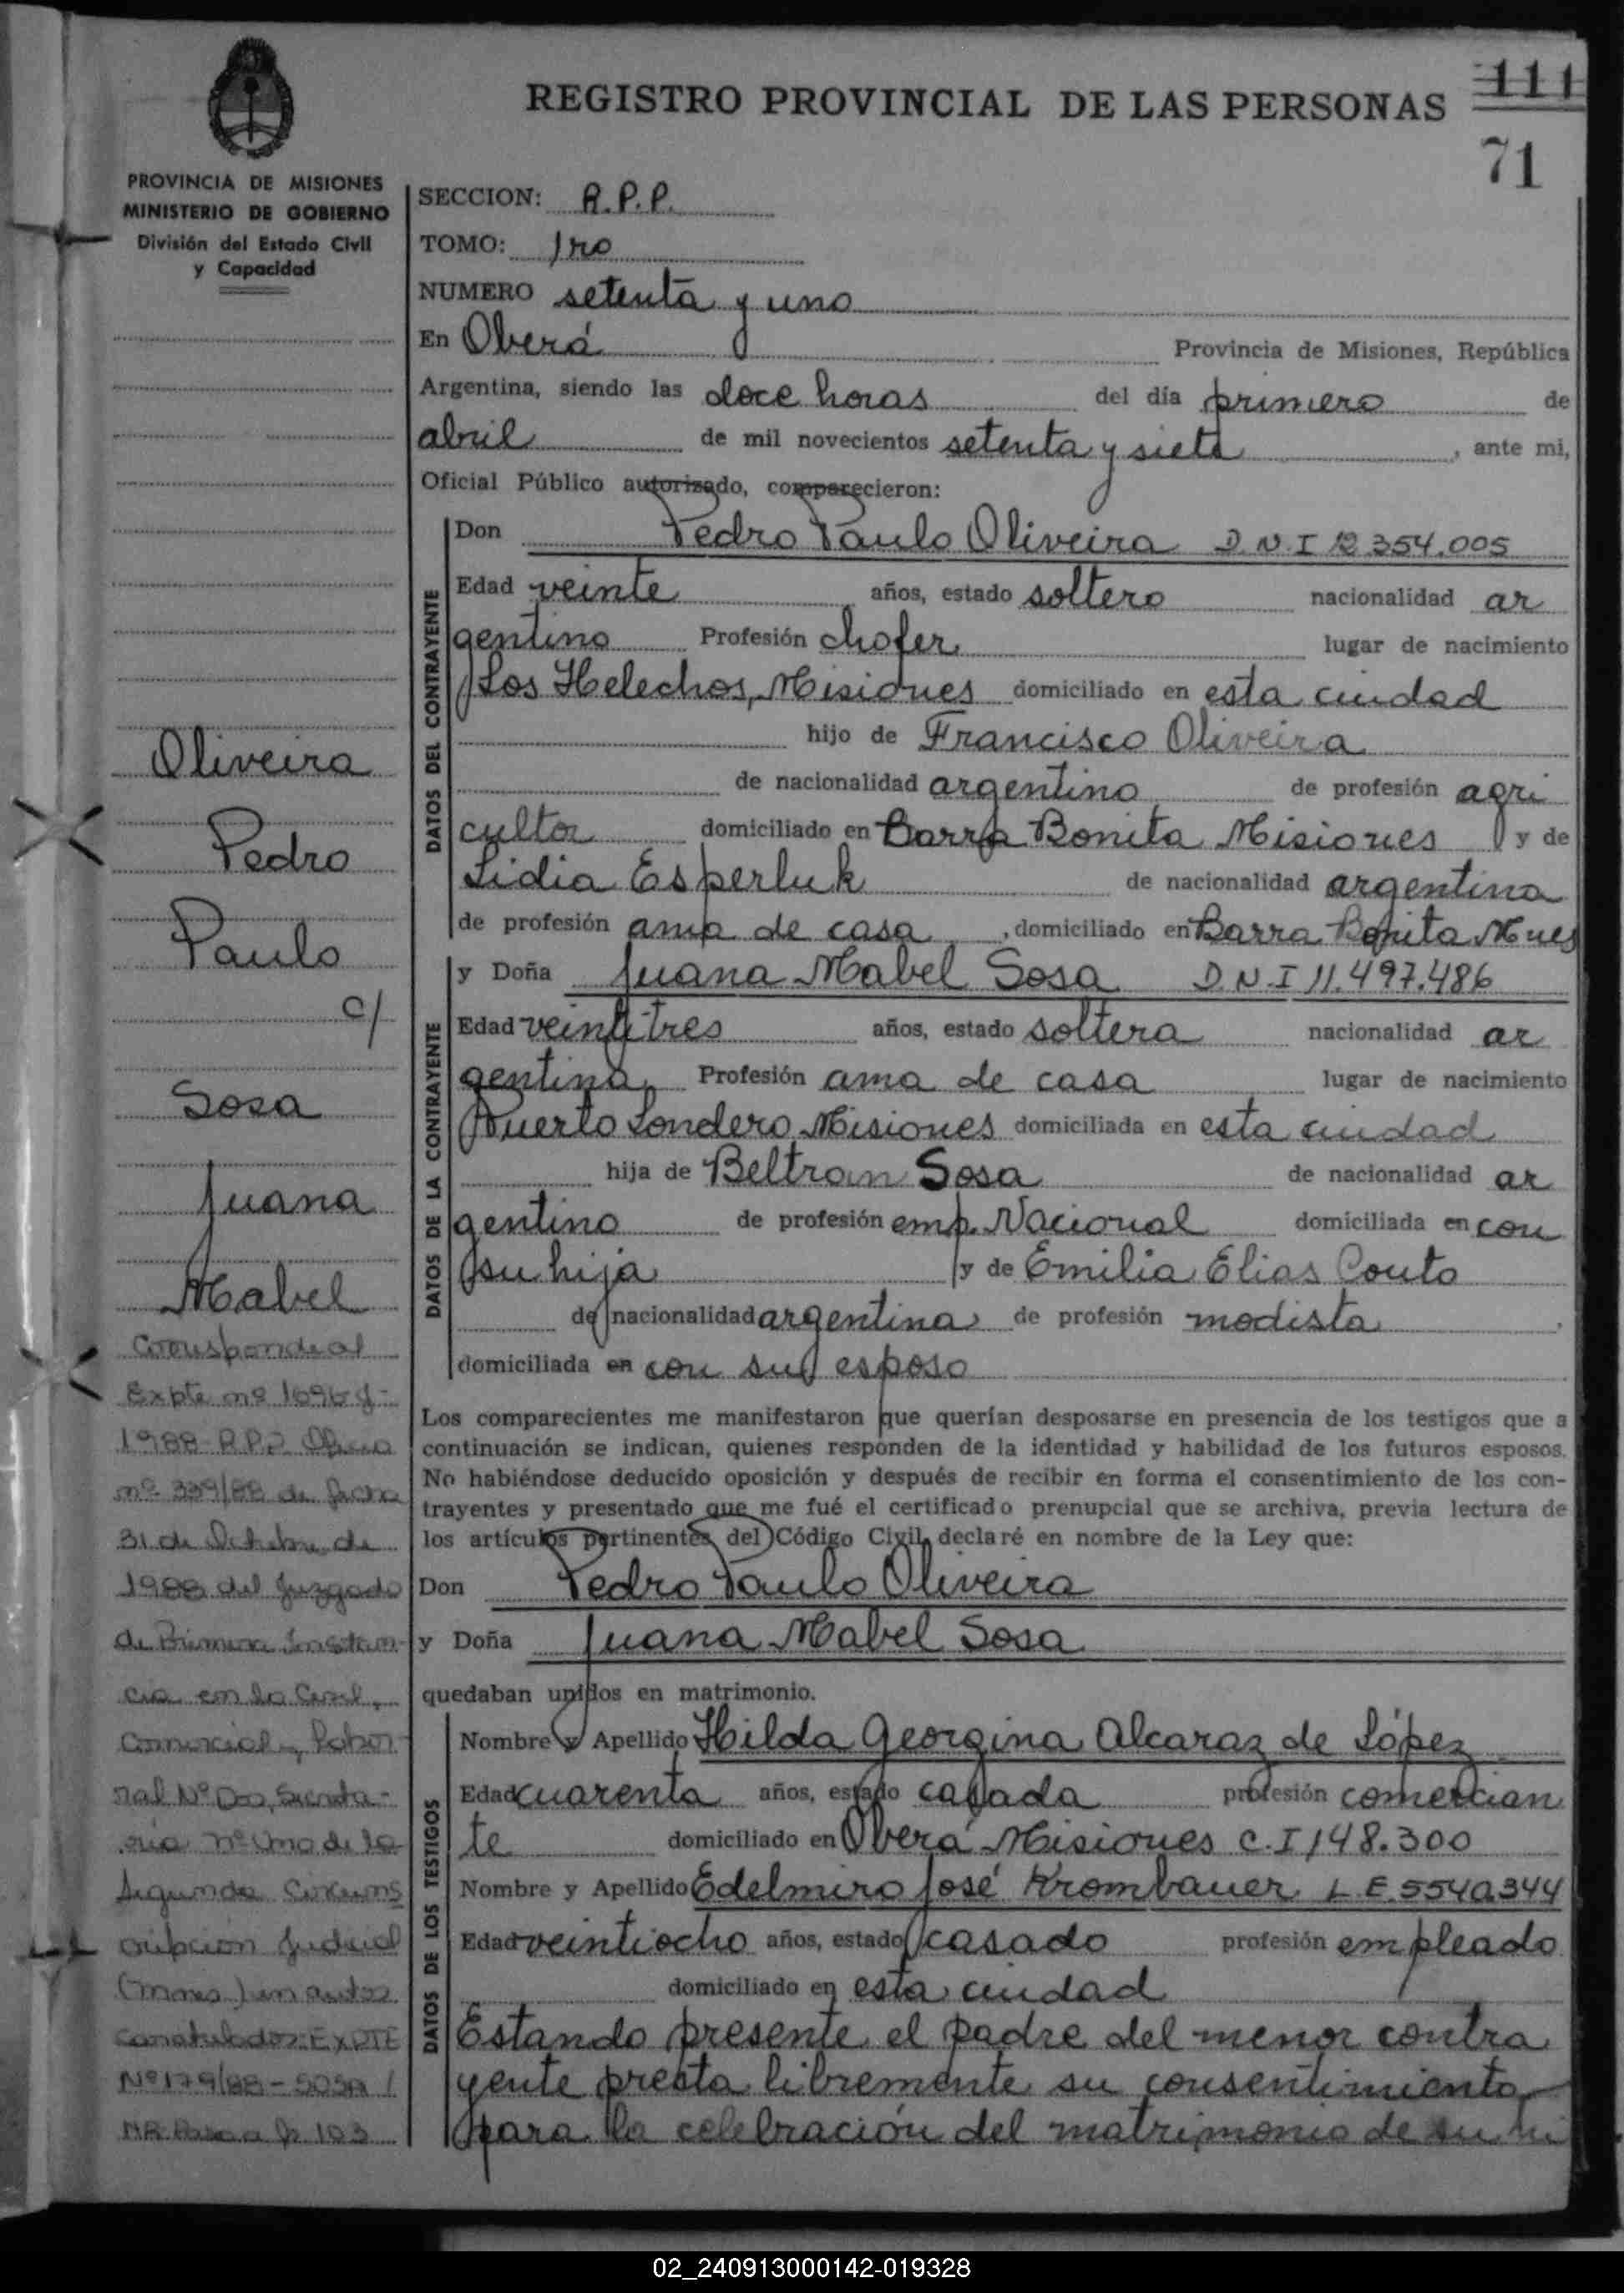 REGISTRO PROVINCIAL DE LAS PERSONAS
111
71
PROVINCIA DE MISIONES
MINISTERIO DE GOBIERNO
División del Estado Civil
y Capacidad
SECCION: R.P.P.
TOMO: 1ro
NUMERO setenta y uno
En Oberá Provincia de Misiones, República
Argentina, siendo las doce horas del día primero de
abril de mil novecientos setenta y siete, ante mi,
Oficial Público autorizado, comparecieron:
DATOS DEL CONTRAYENTE
Don Pedro Paulo Oliveira D.N.I 12.354.005
Edad veinte años, estado soltero nacionalidad ar
gentino Profesión chofer lugar de nacimiento
Los Helechos, Misiones domiciliado en esta ciudad
hijo de Francisco Oliveira
de nacionalidad argentino de profesión agri
cultor domiciliado en Barra Bonita Misiones y de
Lidia Esperluk de nacionalidad argentina
de profesión ama de casa, domiciliado en Barra Bonita Mnes
DATOS DE LA CONTRAYENTE
y Doña Juana Mabel Sosa D.N.I 11.497.486
Edad veintitres años, estado soltera nacionalidad ar
gentina Profesión ama de casa lugar de nacimiento
Puerto Londero Misiones domiciliada en esta ciudad
hija de Beltran Sosa de nacionalidad ar
gentino de profesión emp. Nacional domiciliada en con
su hija y de Emilia Elias Couto
de nacionalidad argentina de profesión modista,
domiciliada en con su esposo
Los comparecientes me manifestaron que querían desposarse en presencia de los testigos que a
continuación se indican, quienes responden de la identidad y habilidad de los futuros esposos.
No habiéndose deducido oposición y después de recibir en forma el consentimiento de los con-
trayentes y presentado que me fué el certificado prenupcial que se archiva, previa lectura de
los artículos pertinentes del Código Civil, declaré en nombre de la Ley que:
Don Pedro Paulo Oliveira
y Doña Juana Mabel Sosa
quedaban unidos en matrimonio.
DATOS DE LOS TESTIGOS
Nombre y Apellido Hilda Georgina Alcaraz de López
Edad cuarenta años, estado casada profesión comercian
te domiciliado en Oberá Misiones C.I 148.300
Nombre y Apellido Edelmiro José Krombauer L.E. 5540344
Edad veintiocho años, estado casado profesión empleado
domiciliado en esta ciudad
Estando presente el padre del menor contra
yente presta libremente su consentimiento
para la celebración del matrimonio de su hi
Oliveira
Pedro
Paulo
c/
Sosa
Juana
Mabel
Corresponde al
Expte nº 1696
1988 R.P.P. Oficio
nº 339/88 de fecha
31 de Octubre de
1988 del Juzgado
de Primera Instan-
cia en lo Civil,
Comercial y Labor
ral Nº Dos, Secreta-
ria nº Uno de la
Segunda Circuns
cripcion Judicial
(Mnes) en autos
caratulados: EXPTE
Nº 179/88 - SOSA
Pasa a fº 103
02_240913000142-019328